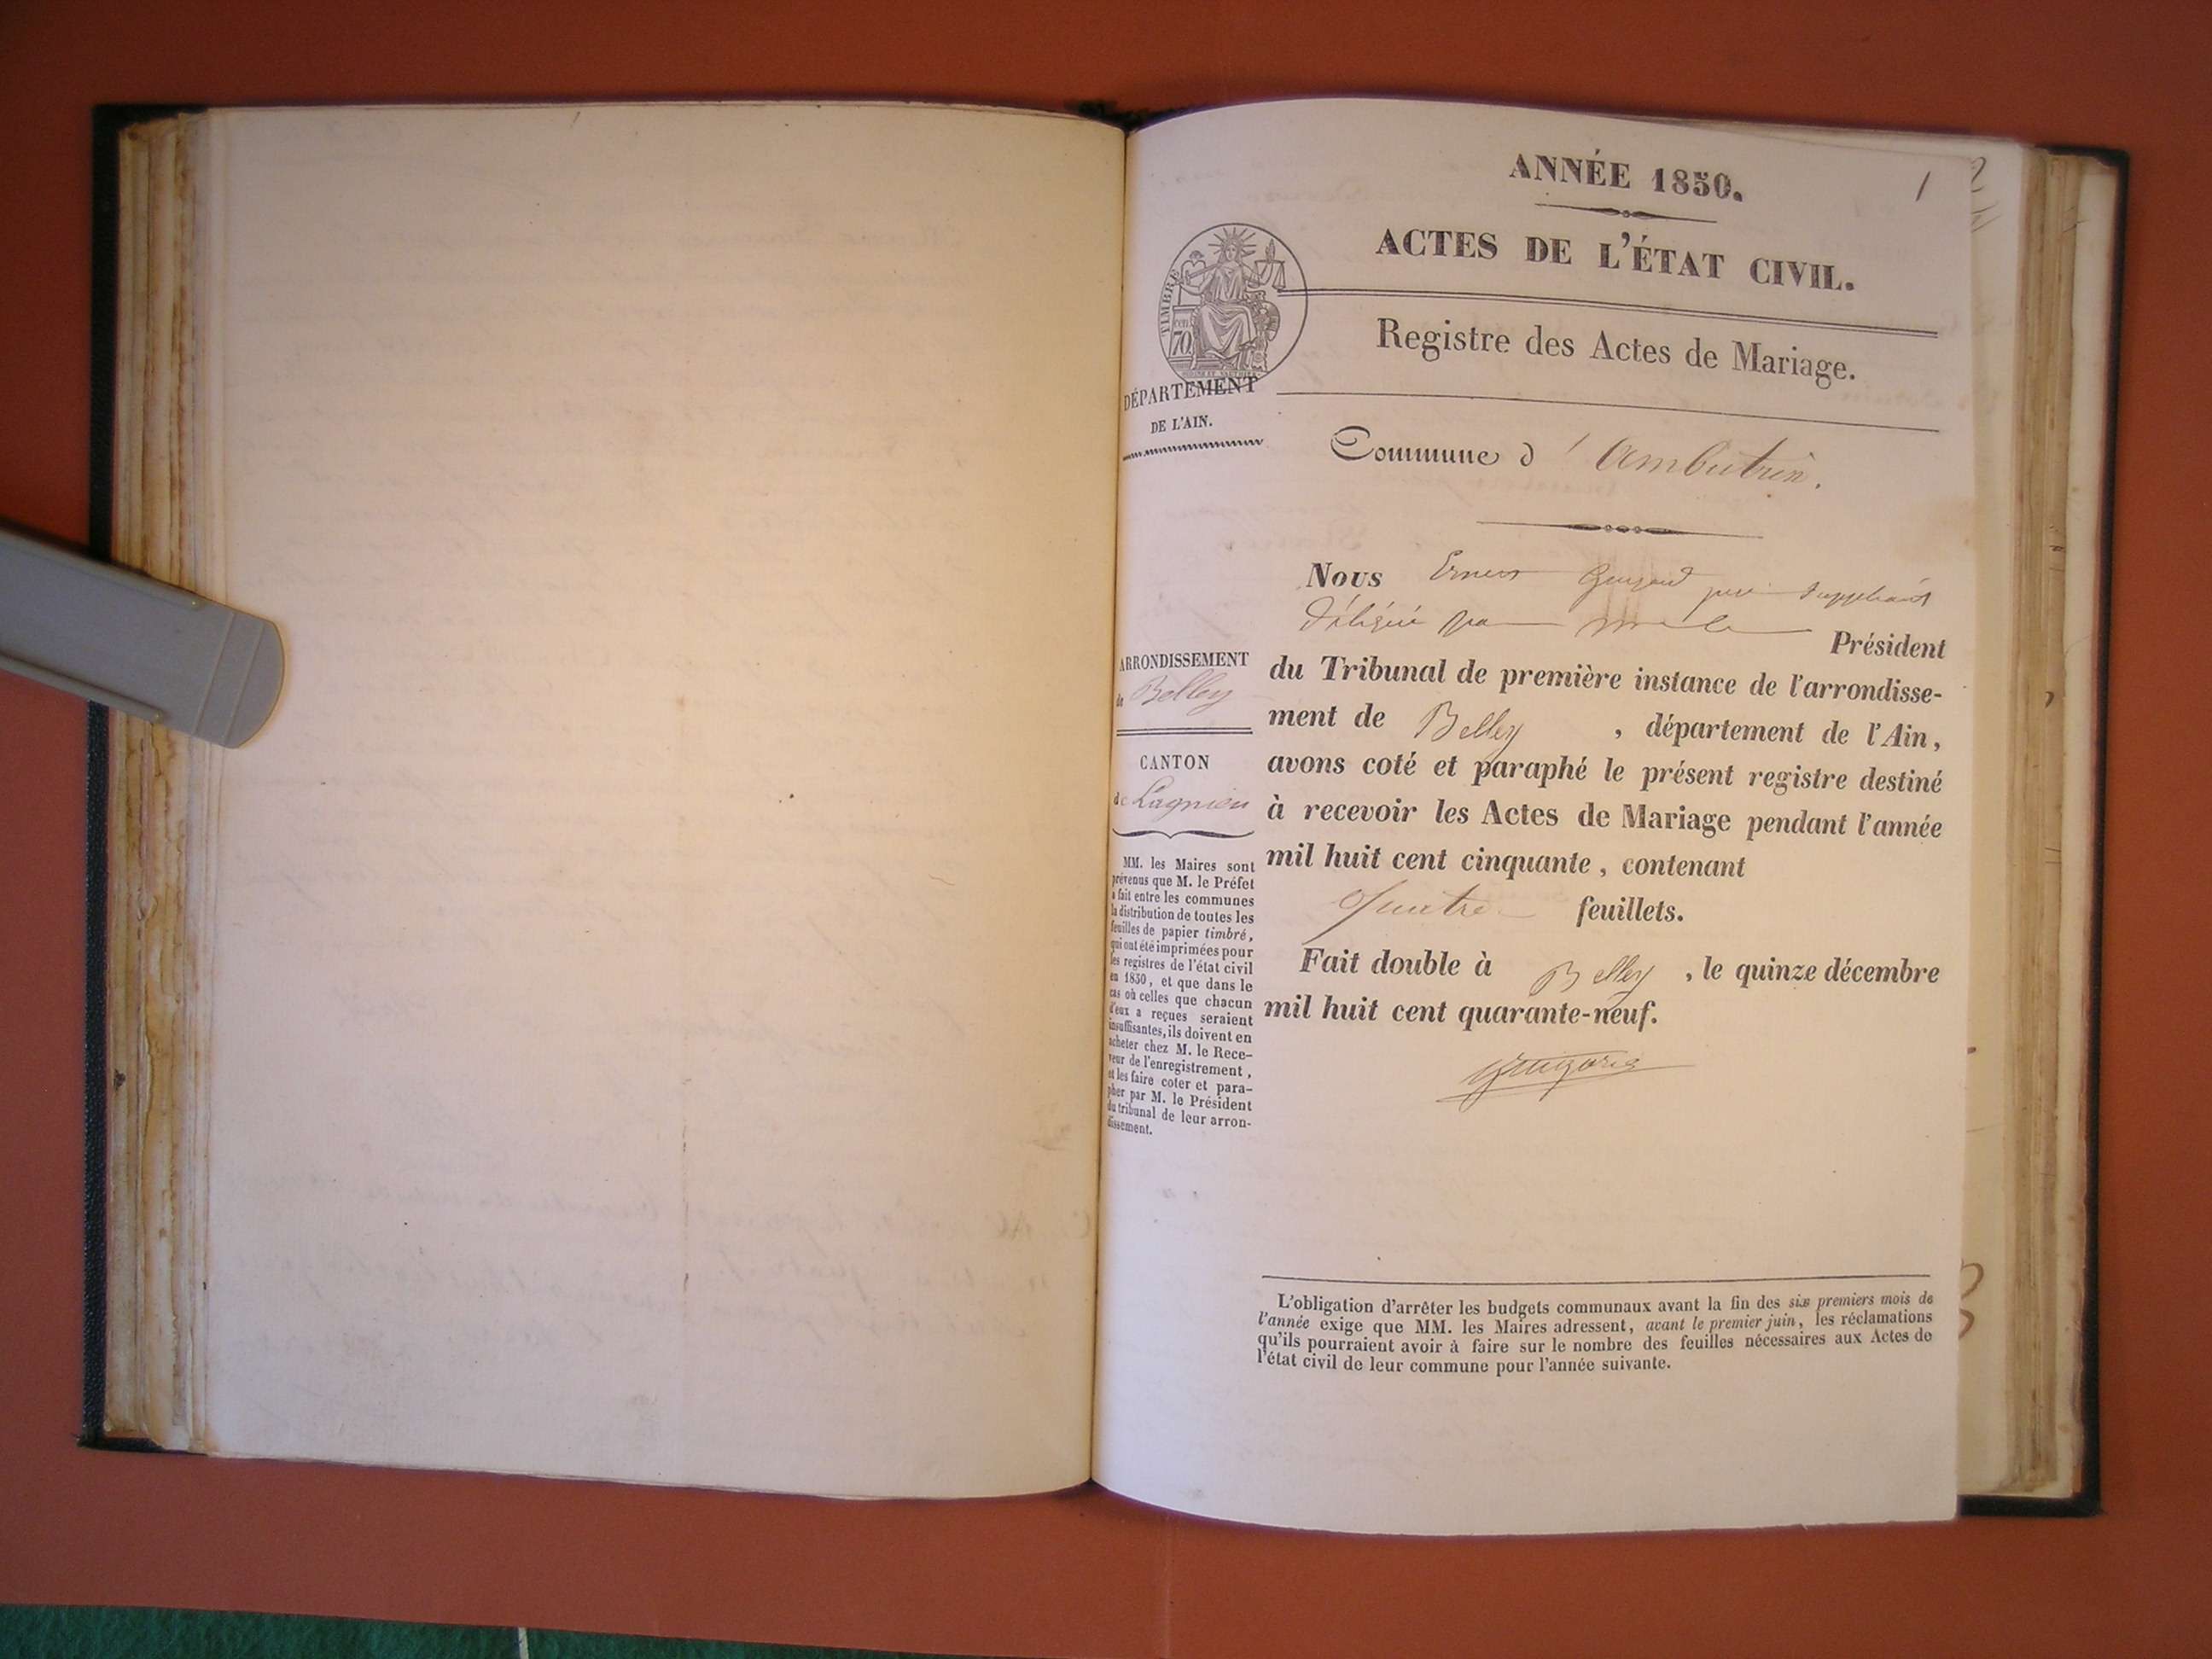 ANNÉE 1850.
1
2
ACTES DE L'ÉTAT CIVIL.
TIMBRE
cen.
70
Registre des Actes de Mariage.
DÉPARTEMENT
DE L'AIN.
Commune d' Ambutrin.
Nous Ernest juge suppléant
délégué par Mr le Président
du Tribunal de première instance de l'arrondisse-
ment de Belley, département de l'Ain,
avons coté et paraphé le présent registre destiné
à recevoir les Actes de Mariage pendant l'année
mil huit cent cinquante, contenant
Quatre feuillets.
Fait double à Belley, le quinze décembre
mil huit cent quarante-neuf.
ARRONDISSEMENT
de Belley
CANTON
de Lagnieu
MM. les Maires sont
prévenus que M. le Préfet
a fait entre les communes
la distribution de toutes les
feuilles de papier timbré,
qui ont été imprimées pour
les registres de l'état civil
en 1850, et que dans le
cas où celles que chacun
d'eux a reçues seraient
insuffisantes, ils doivent en
acheter chez M. le Rece-
veur de l'enregistrement,
et les faire coter et para-
pher par M. le Président
du tribunal de leur arron-
dissement.
L'obligation d'arrêter les budgets communaux avant la fin des six premiers mois de
l'année exige que MM. les Maires adressent, avant le premier juin, les réclamations
qu'ils pourraient avoir à faire sur le nombre des feuilles nécessaires aux Actes de
l'état civil de leur commune pour l'année suivante.